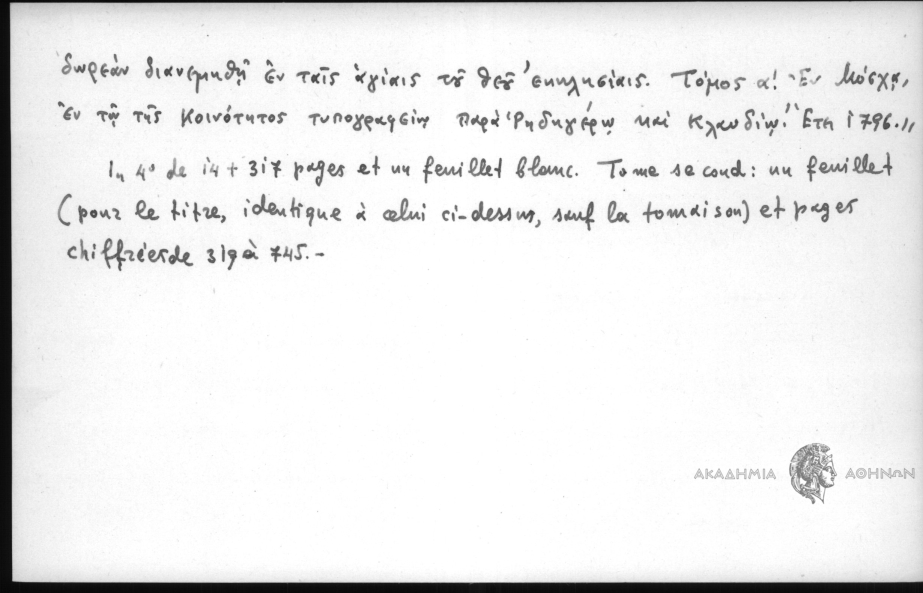 δωρεὰν διανεμηθῇ ἐν ταῖς ἁγίαις τοῦ θεοῦ ἐκκλησίαις. Τόμος α! Ἐν Μόσχᾳ,
ἐν τῷ τῆς Κοινότητος τυπογραφείῳ παρὰ Ῥηδηγέρῳ καὶ Κλαυδίῳ. Ἔτει 1796.,,
In 4° de 14 + 317 pages et un feuillet blanc. Tome second: un feuillet
(pour le titre, identique à celui ci-dessus, sauf la tomaison) et pages
chiffrées de 319 à 745.-
ΑΚΑΔΗΜΙΑ ΑΘΗΝΩΝ